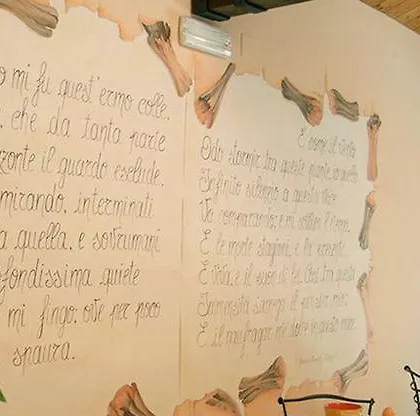 o mi fu quest'ermo colle,
, che da tanta parte
zonte il guardo esclude.
mirando, interminati
a quella, e sovrumani
fondissima quiete
mi fingo; ove per poco
spaura.
E come il vento
Odo stormir tra queste piante, io quello
Infinito silenzio a questa voce
Vo comparando; e mi sovvien l'eterno,
E le morte stagioni, e la presente
E viva, e il suon di lei. Così tra questa
Immensità s'annega il pensier mio:
E il naufragar m'è dolce in questo mare.